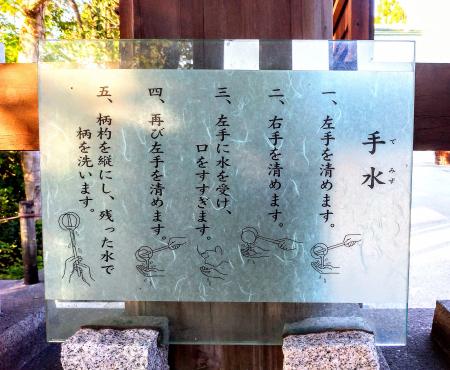 手水
てみず
一、左手を清めます。
二、右手を清めます。
三、左手に水を受け、
口をすすぎます。
四、再び左手を清めます。
五、柄杓を縦にし、残った水で
柄を洗います。